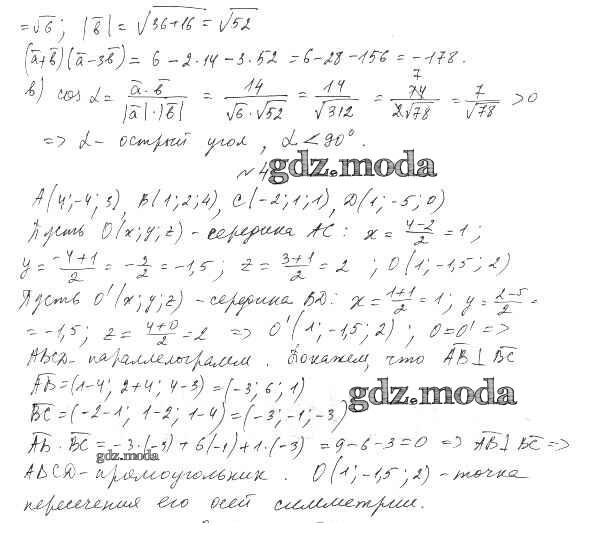 = √6; |b̅| = √36+16 = √52
(a̅+b̅)(a̅-3b̅) = 6 - 2·14 - 3·52 = 6-28-156 = -178.
в) cos α = a̅·b̅ / |a̅|·|b̅| = 14 / √6·√52 = 14 / √312 = 14 7 / 2√78 = 7 / √78 > 0
=> α - острый угол, α < 90°.
№4
gdz.moda
A(4;-4;3), B(1;2;4), C(-2;1;1), D(1;-5;0)
Пусть O(x;y;z) - середина AC: x = 4-2 / 2 = 1;
y = -4+1 / 2 = -3/2 = -1,5; z = 3+1 / 2 = 2; O(1;-1,5;2)
Пусть O'(x;y;z) - середина BD: x = 1+1 / 2 = 1; y = 2-5 / 2 =
= -1,5; z = 4+0 / 2 = 2 => O'(1;-1,5;2); O=O' =>
ABCD - параллелограмм. Докажем, что A̅B̅ ⊥ B̅C̅
A̅B̅ = (1-4; 2+4; 4-3) = (-3; 6; 1)
gdz.moda
B̅C̅ = (-2-1; 1-2; 1-4) = (-3; -1; -3)
A̅B̅ · B̅C̅ = -3·(-3) + 6(-1) + 1·(-3) = 9-6-3=0 => A̅B̅ ⊥ B̅C̅ =>
gdz.moda
ABCD - прямоугольник. O(1;-1,5;2) - точка
пересечения его осей симметрии.